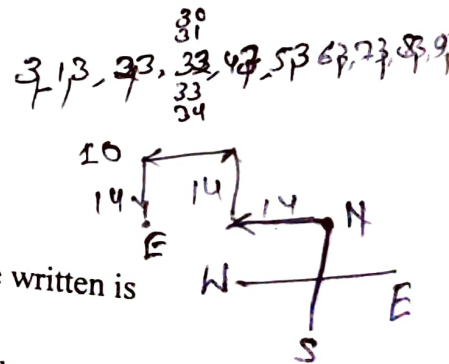 30
31
3, 13, 23, 32, 43, 53 63, 73, 83, 9
33
34
10
14 14 14 N
E
written is W E
S